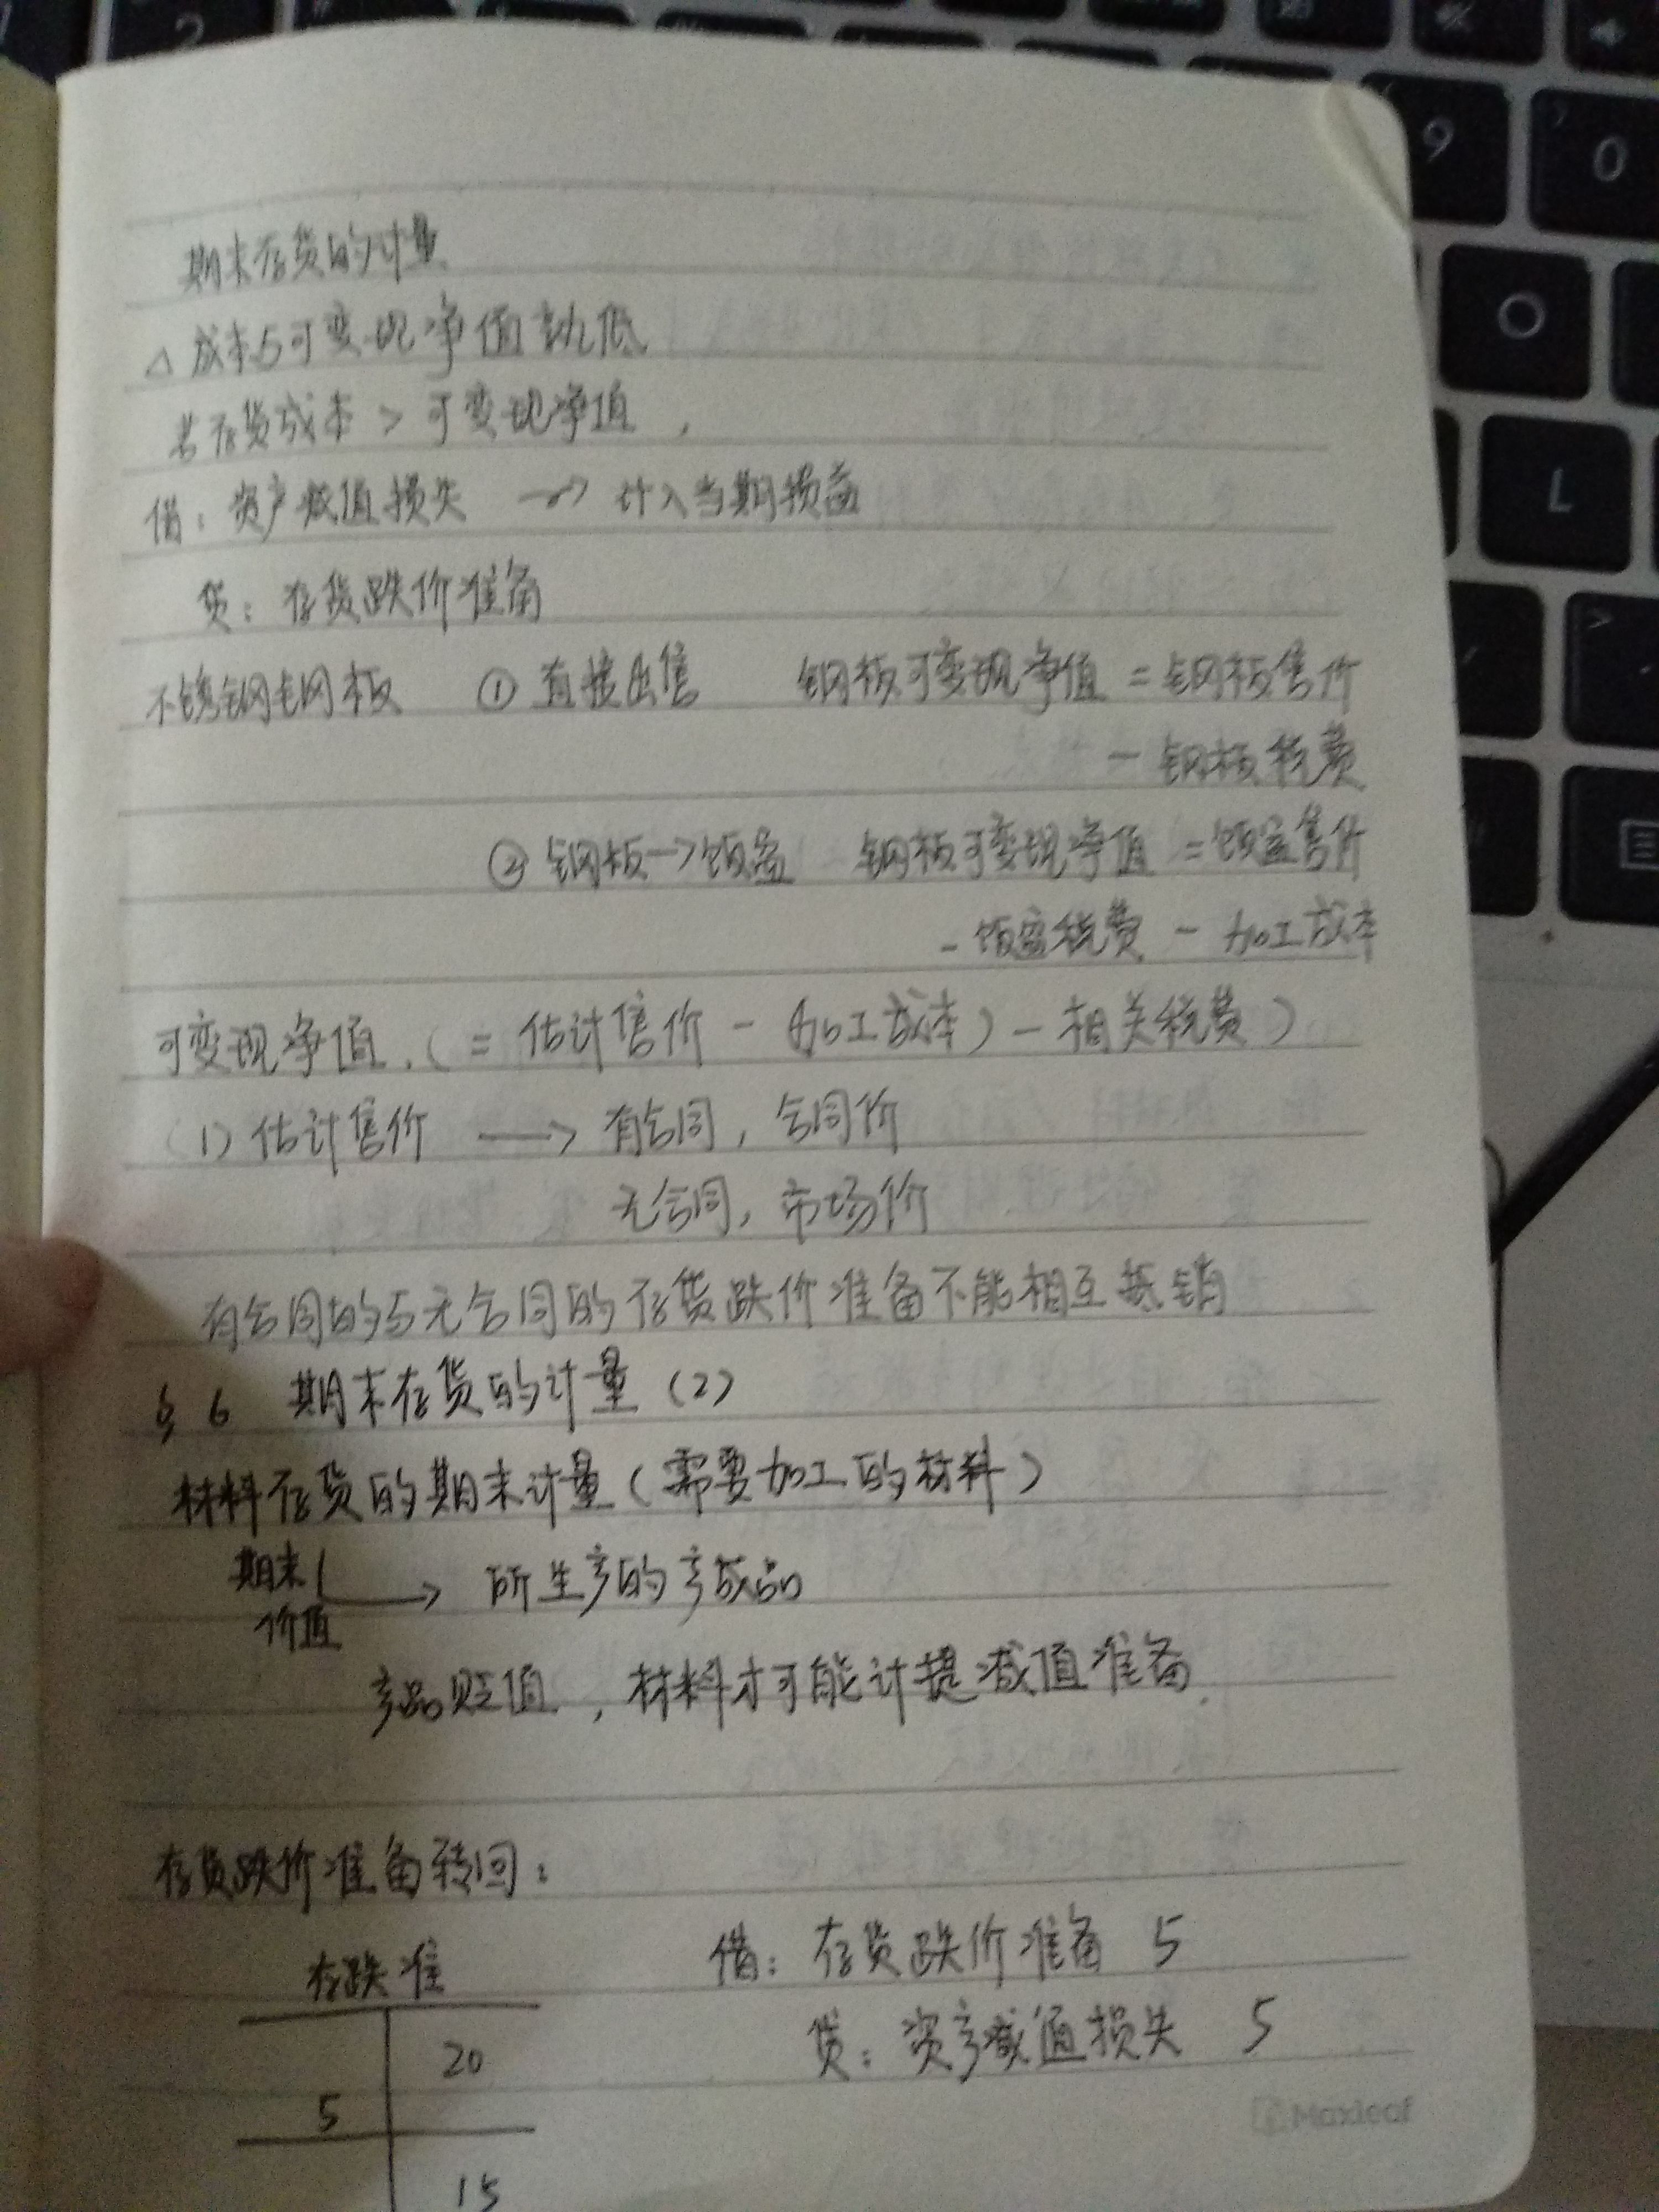 期末存货的计量
△ 成本与可变现净值孰低
若存货成本 > 可变现净值,
借: 资产减值损失 → 计入当期损益
贷: 存货跌价准备
不锈钢钢板 ① 直接出售 钢板可变现净值 = 钢板售价
- 钢板税费
② 钢板→饭盒 钢板可变现净值 = 饭盒售价
- 饭盒税费 - 加工成本
可变现净值.( = 估计售价 - 加工成本) - 相关税费)
(1) 估计售价 → 有合同, 合同价
无合同, 市场价
有合同的与无合同的存货跌价准备不能相互抵销
§ 6 期末存货的计量 (2)
材料存货的期末计量 (需要加工的材料)
期末 → 所生产的产成品
价值
产品贬值, 材料才可能计提减值准备.
存货跌价准备转回:
存跌准 借: 存货跌价准备 5
贷: 资产减值损失 5
20
5
15
Maxleaf
2
9
0
O
L
>